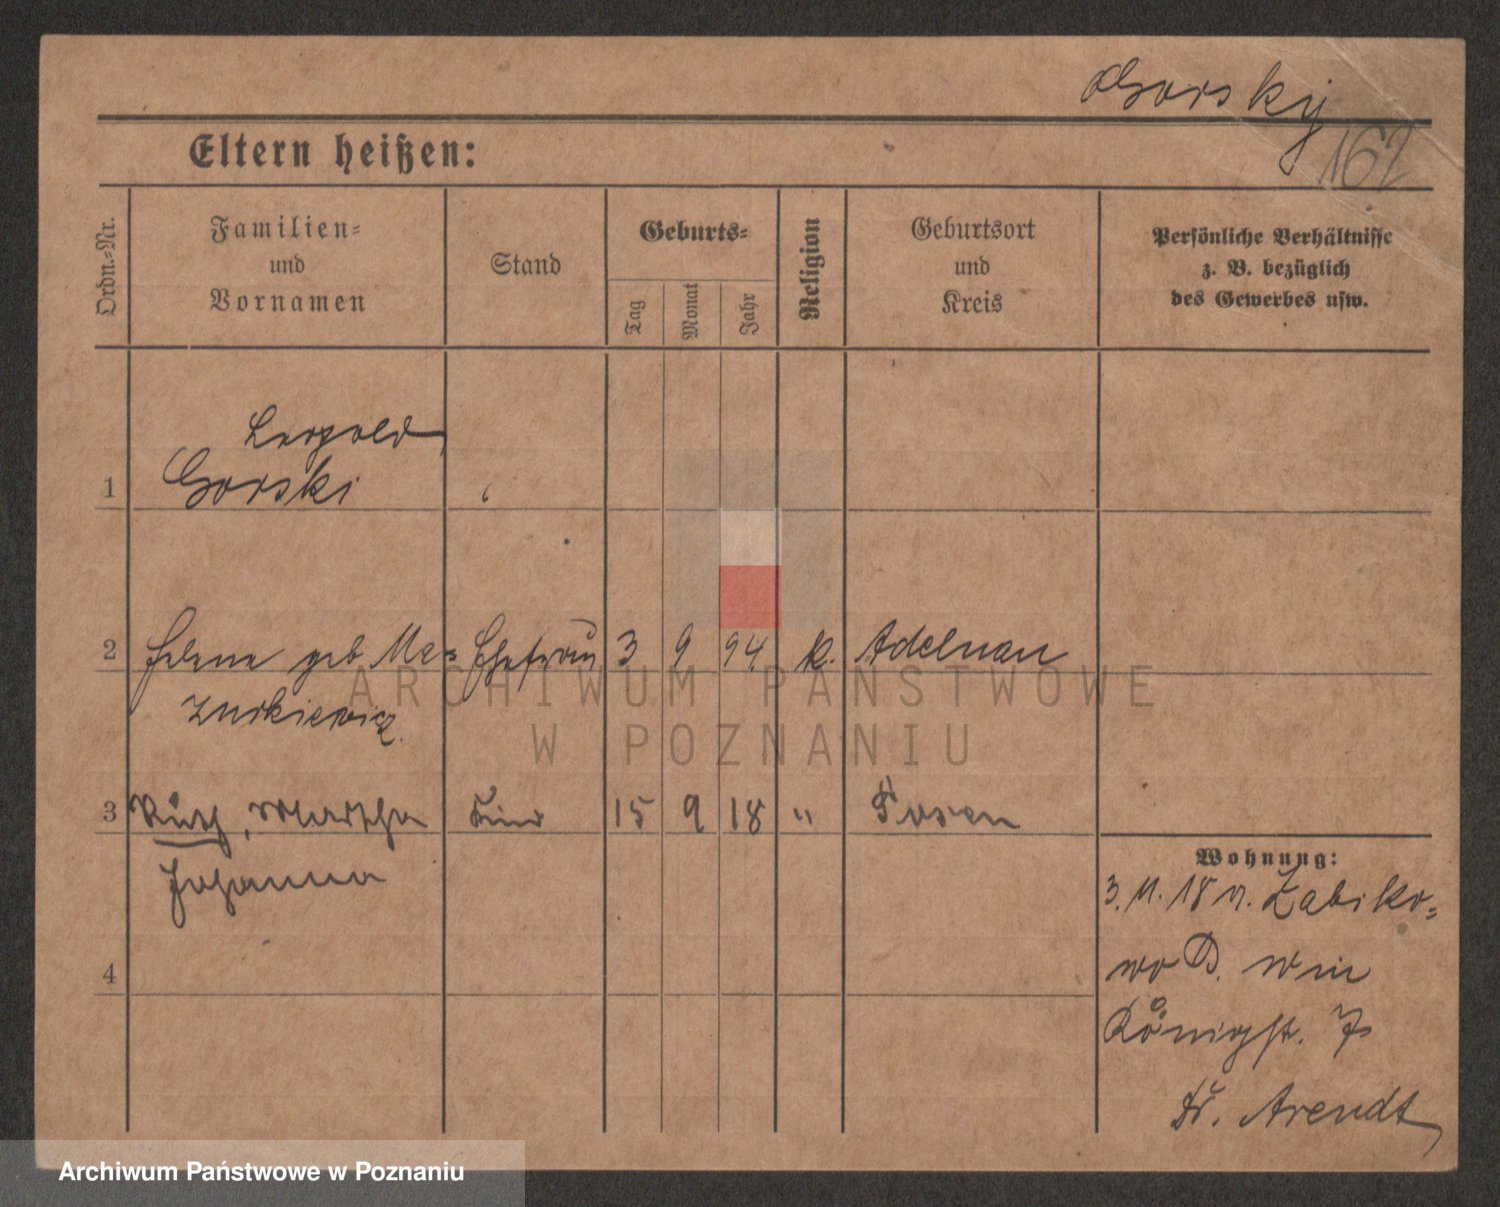 Gorsky
162
Eltern heißen:
Ordn.-Nr.
Familien-
und
Vornamen
Stand
Geburts-
Tag
Monat
Jahr
Religion
Geburtsort
und
Kreis
Persönliche Verhältnisse
z. B. bezüglich
des Gewerbes usw.
Leopold
1 Gorski
2 Helene geb Ma= Ehefrau 3 9 94 k. Adelnau
zurkiewicz.
3 Ruth, Martha Kind 15 9 18 " Posen
Johanna
4
Wohnung:
3. 11. 18 v. Zabiko=
wo
Königstr. 7
Fr. Arendt
ARCHIWUM PAŃSTWOWE
W POZNANIU
Archiwum Państwowe w Poznaniu